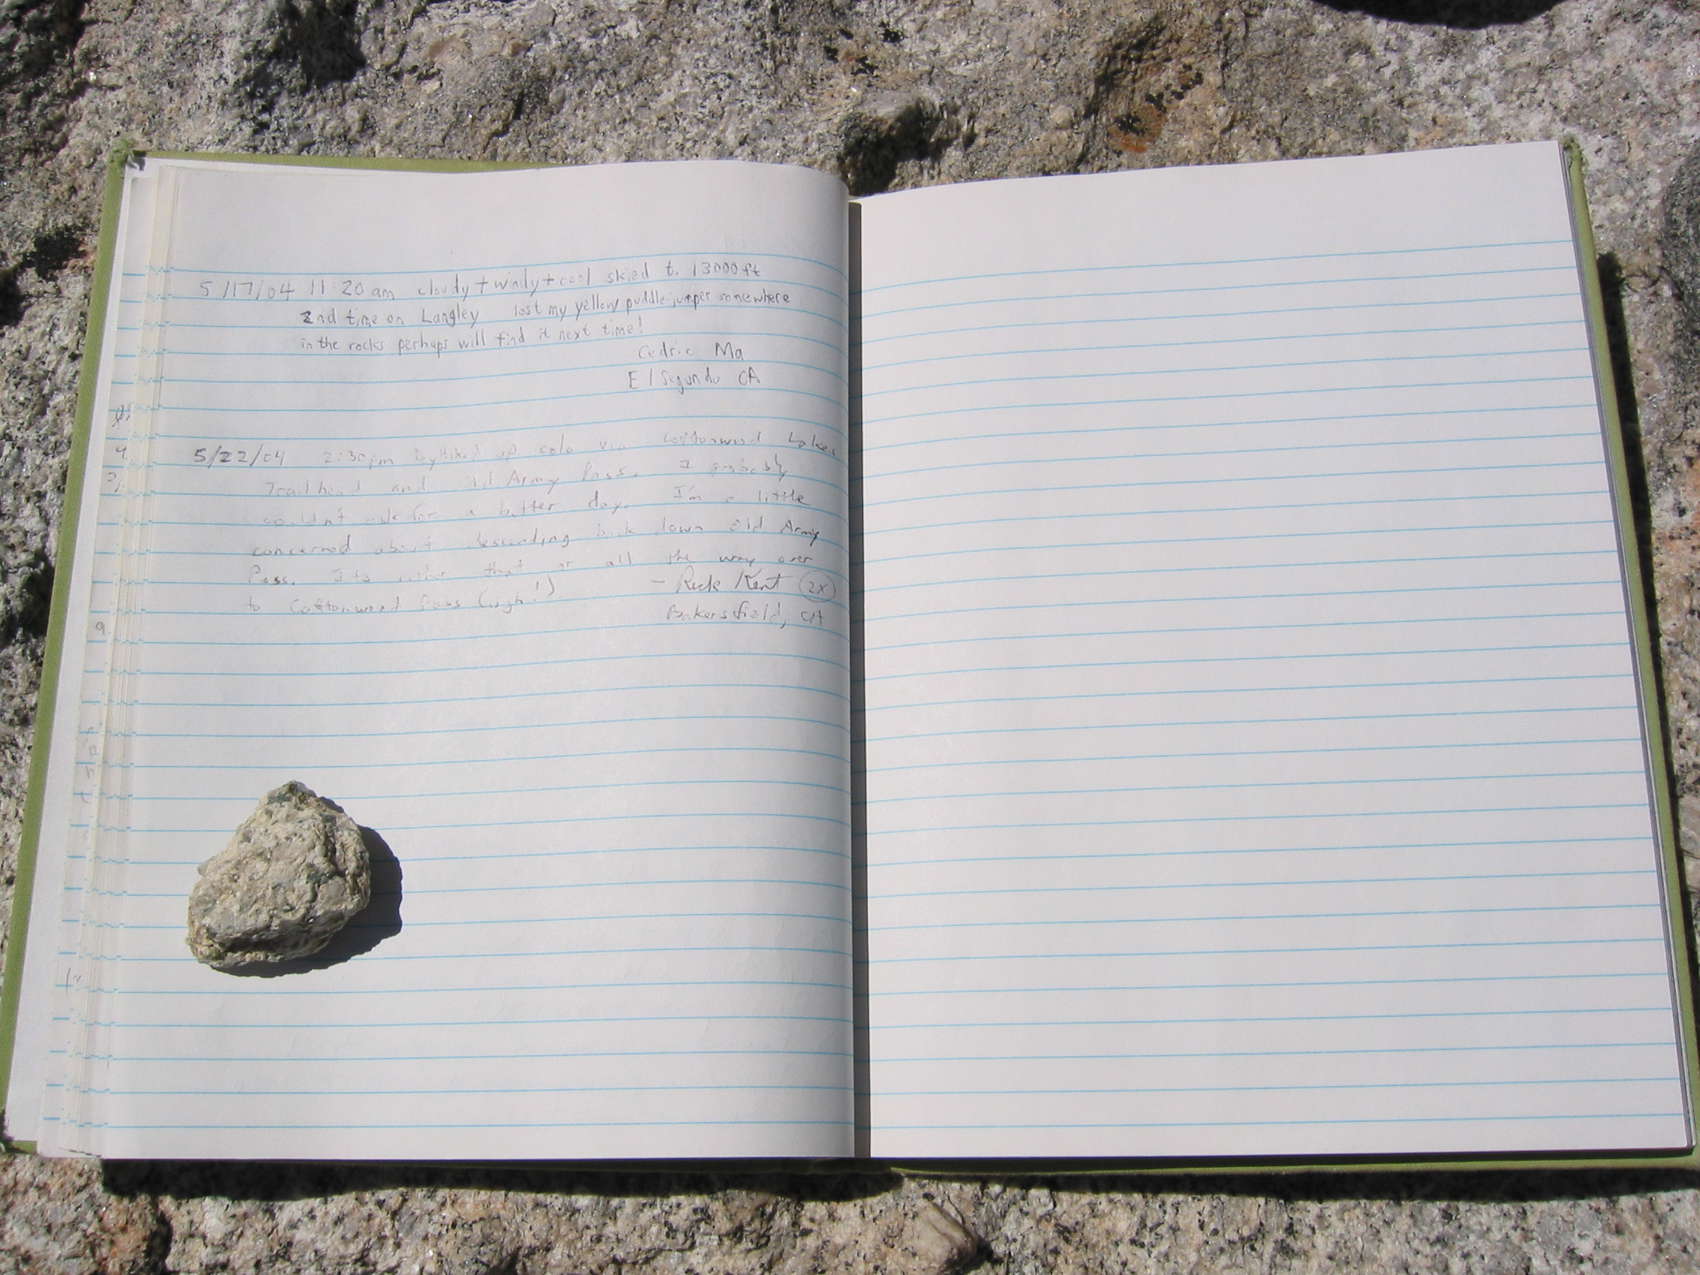 5/17/04 11:20 am cloudy + windy + cool skied to 13000ft
2nd time on Langley lost my yellow puddle-jumper somewhere
in the rocks perhaps will find it next time!
Cedric Ma
El Segundo CA
5/22/04 2:30pm up solo via Cottonwood Lakes
Trailhead and Old Army Pass. I probably
couldn't ask for a better day. I'm a little
concerned about descending back down Old Army
Pass. It's either that or all the way over
to Cottonwood Pass (ugh!)
- Rick Kent (2x)
Bakersfield, CA